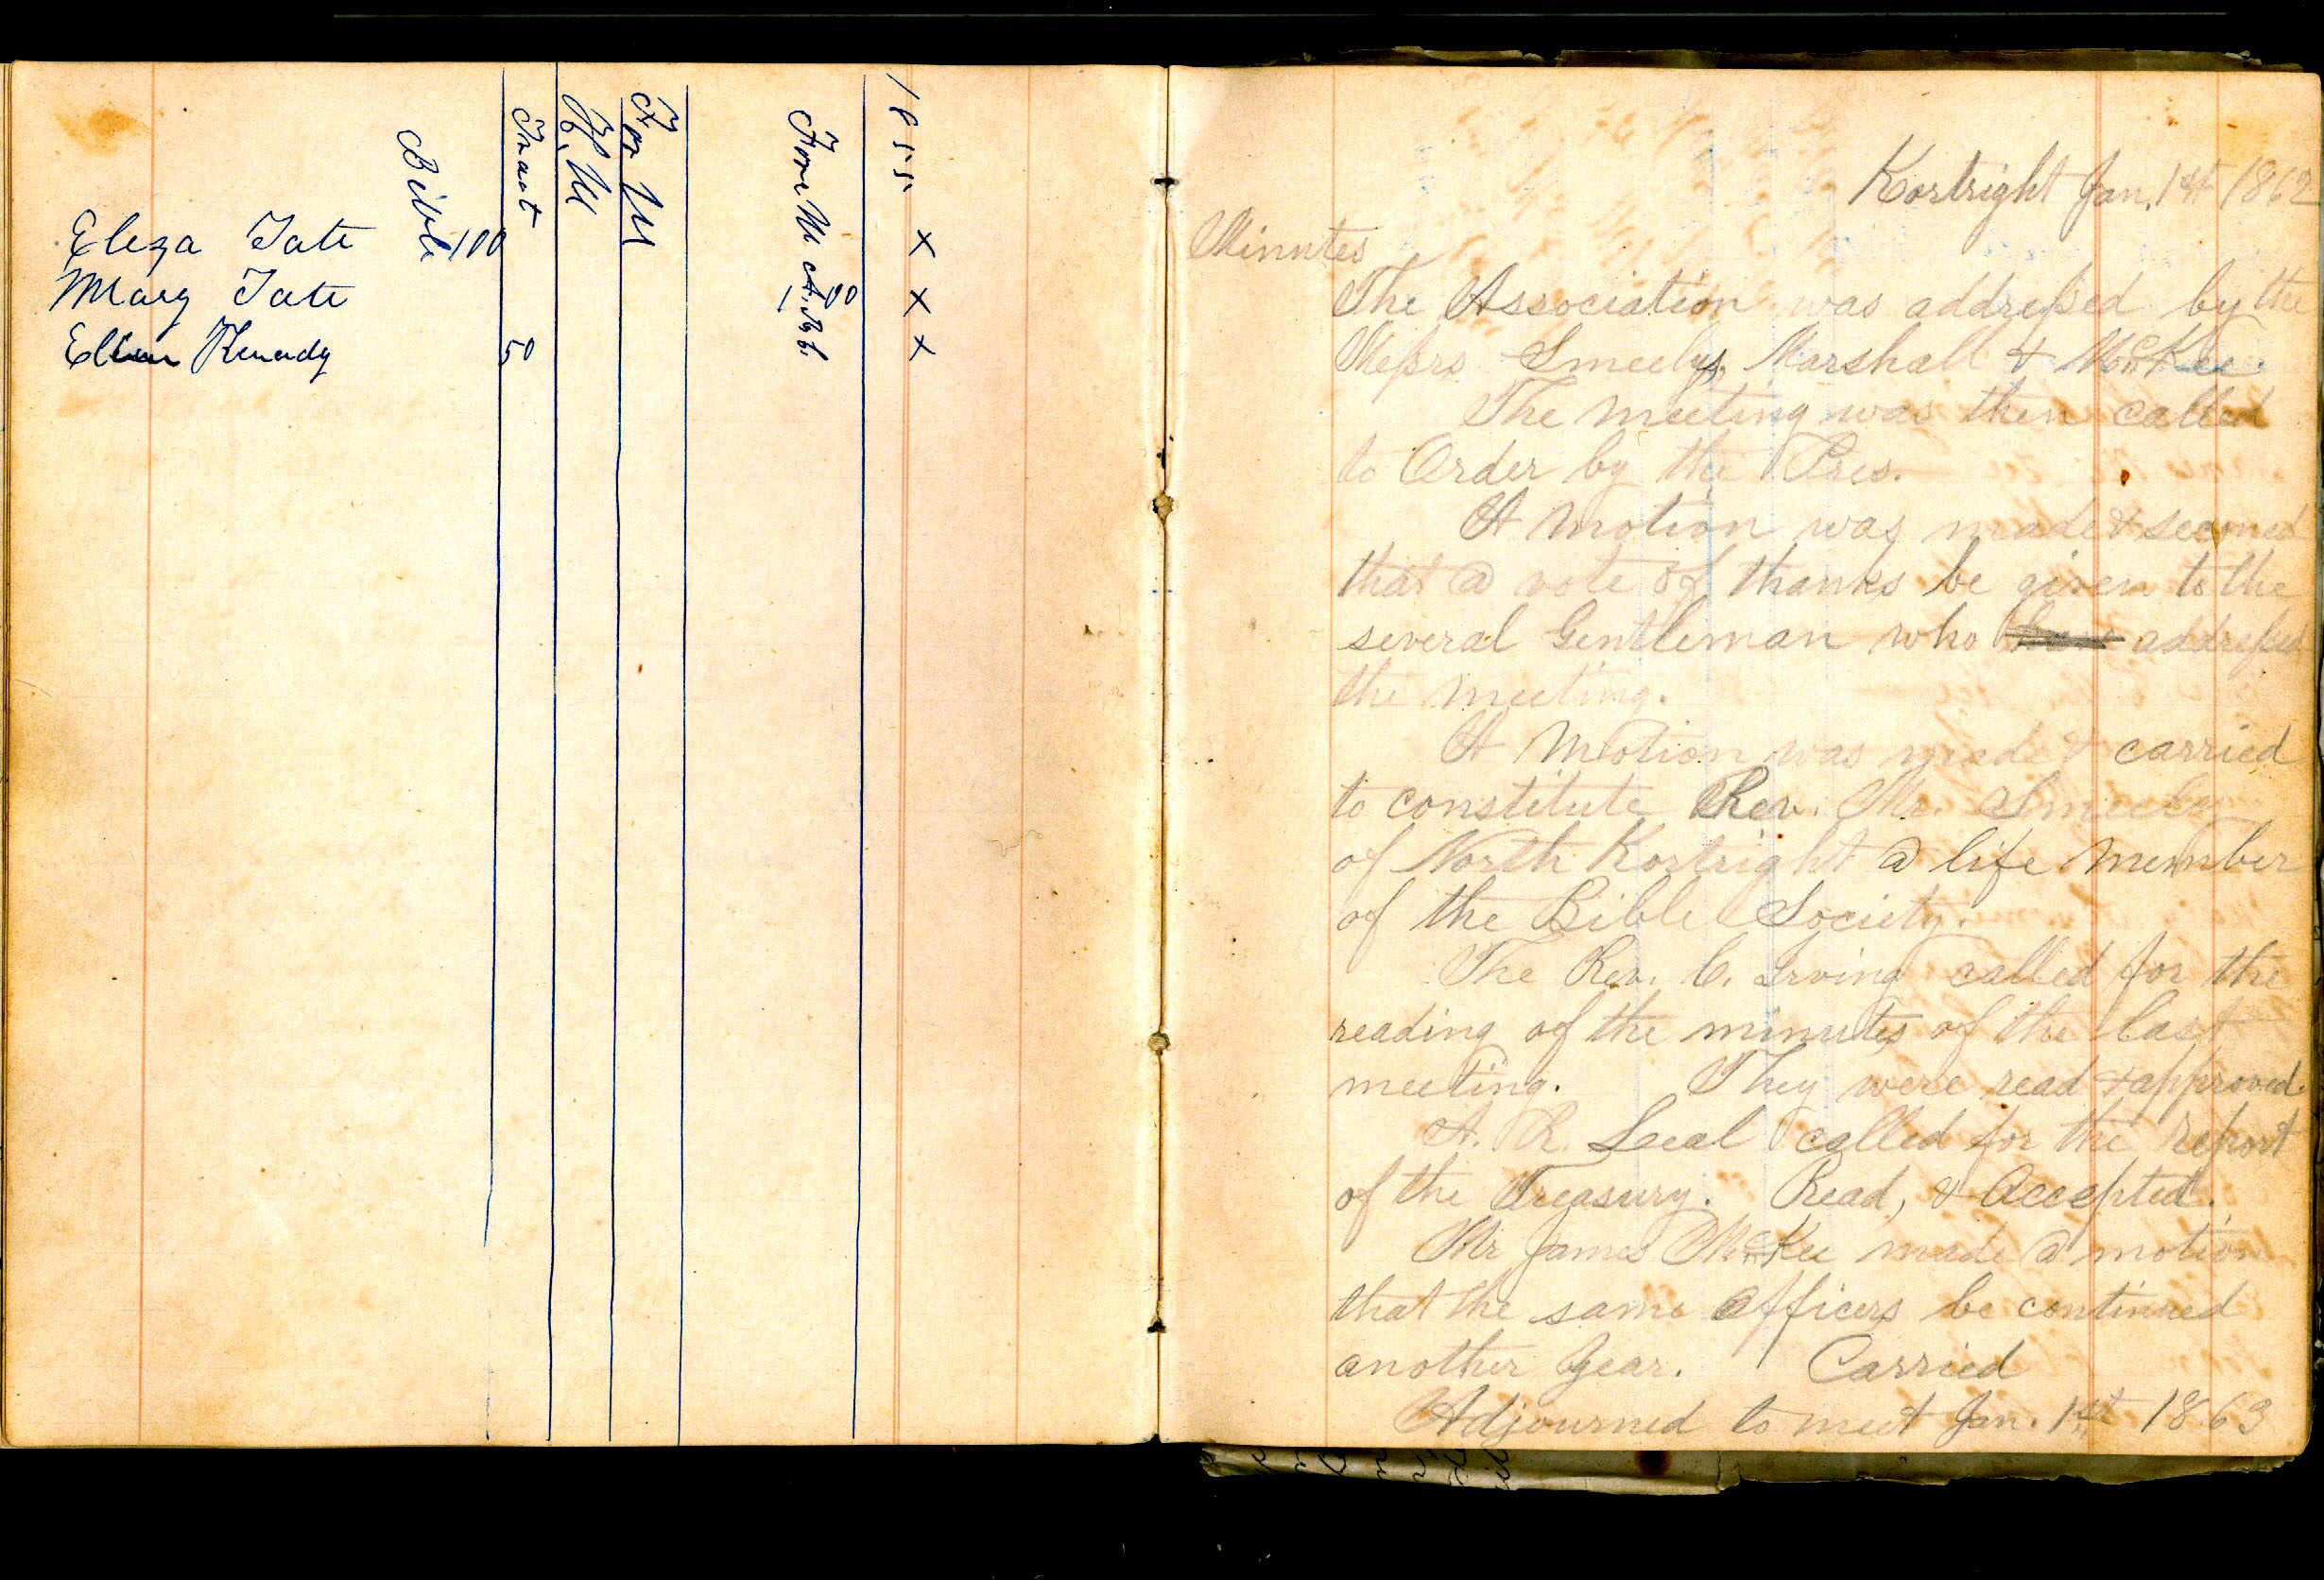 Bible
Tract
H. M
For M
Fore M
1855
Eliza Tate 100 x
Mary Tate 1,00 x
Ellen Kenedy 50 x
Kortright Jan. 1st 1862
Minutes
The Association was addreſsed by the
Meſsrs Smeely, Marshall & McKee.
The meeting was then called
to Order by the Pres.
A motion was made & second
that a vote of thanks be given to the
several Gentleman who addreſsed
the meeting.
A Motion was made & carried
to constitute Rev. Mr. Smeely
of North Kortright a life member
of the Bible Society.
The Rev. C. Irving called for the
reading of the minutes of the last
meeting. They were read & approved.
A. R. Leal called for the report
of the Treasury. Read, & Accepted.
Mr James McKee made a motion
that the same officers be continued
another year. Carried
Adjourned to meet Jan. 1st 1863